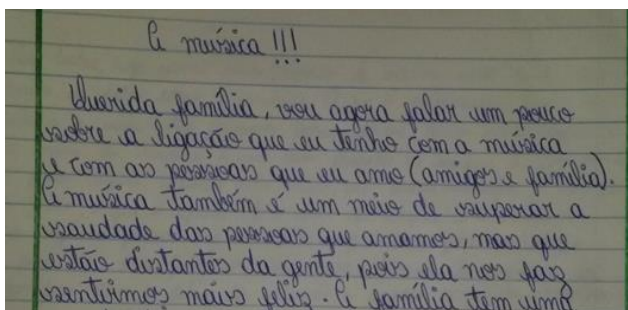 A música!!!
Querida família, vou agora falar um pouco
sobre a ligação que eu tenho com a música
e com as pessoas que eu amo (amigos e família).
A música também é um meio de superar a
saudade das pessoas que amamos, mas que
estão distantes da gente, pois ela nos faz
sentirmos mais feliz. A família tem uma